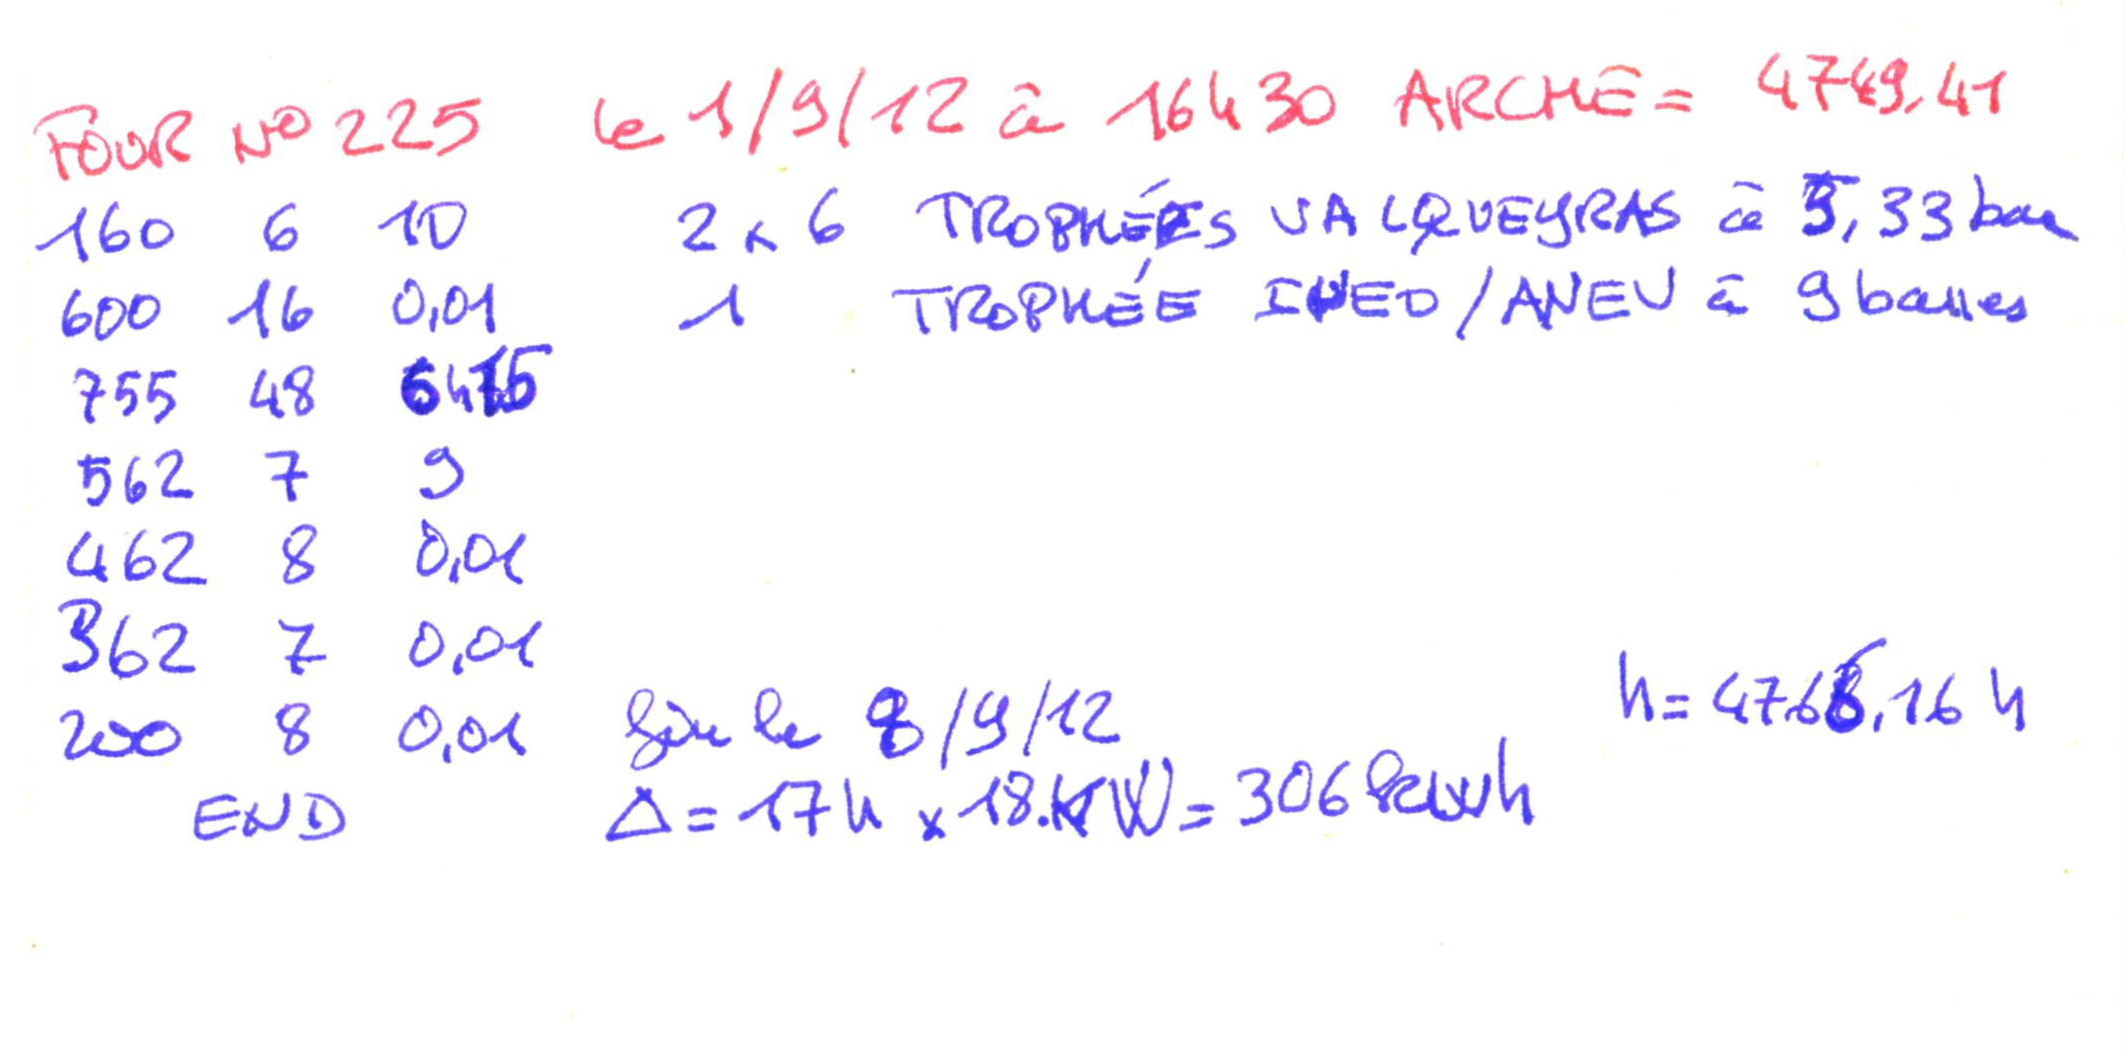 FOUR N° 225 le 1/9/12 à 16h30 ARCHE = 4749,41
160 6 10 2 x 6 TROPHÉES VALQUEYRAS à 5,33 bar
600 16 0,01 1 TROPHÉE INED/ANEV à 9 barres
755 48 6h15
562 7 9
462 8 0,01
362 7 0,01 h = 4766,16 h
200 8 0,01 fin le 8/9/12
END Δ = 17h x 18.KW = 306 kwh